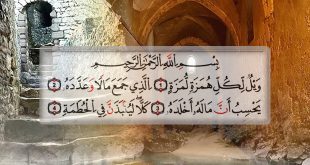 بِسْمِ اللَّهِ الرَّحْمَٰنِ الرَّحِيمِ
وَيْلٌ لِكُلِّ هُمَزَةٍ لُمَزَةٍ ۝١ الَّذِي جَمَعَ مَالًا وَعَدَّدَهُ ۝٢
يَحْسَبُ أَنَّ مَالَهُ أَخْلَدَهُ ۝٣ كَلَّا لَيُنْبَذَنَّ فِي الْحُطَمَةِ ۝٤